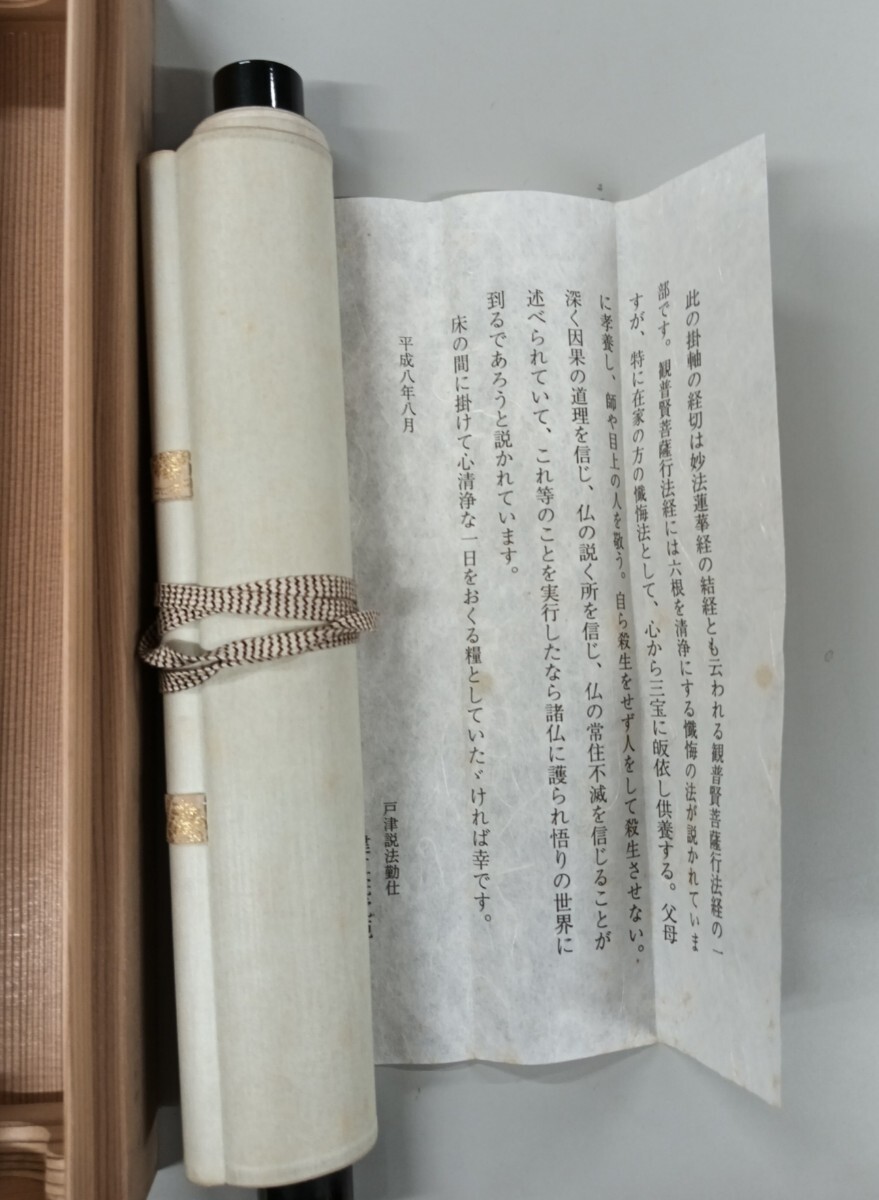 此の掛軸の経切は妙法蓮華経の結経とも云われる観普賢菩薩行法経の一
部です。観普賢菩薩行法経には六根を清浄にする懺悔の法が説かれていま
すが、特に在家の方の懺悔法として、心から三宝に皈依し供養する。父母
に孝養し、師や目上の人を敬う。自ら殺生をせず人をして殺生させない。
深く因果の道理を信じ、仏の説く所を信じ、仏の常住不滅を信じることが
述べられていて、これ等のことを実行したなら諸仏に護られ悟りの世界に
到るであろうと説かれています。
床の間に掛けて心清浄な一日をおくる糧としていたゞければ幸です。
平成八年八月
戸津説法勤仕